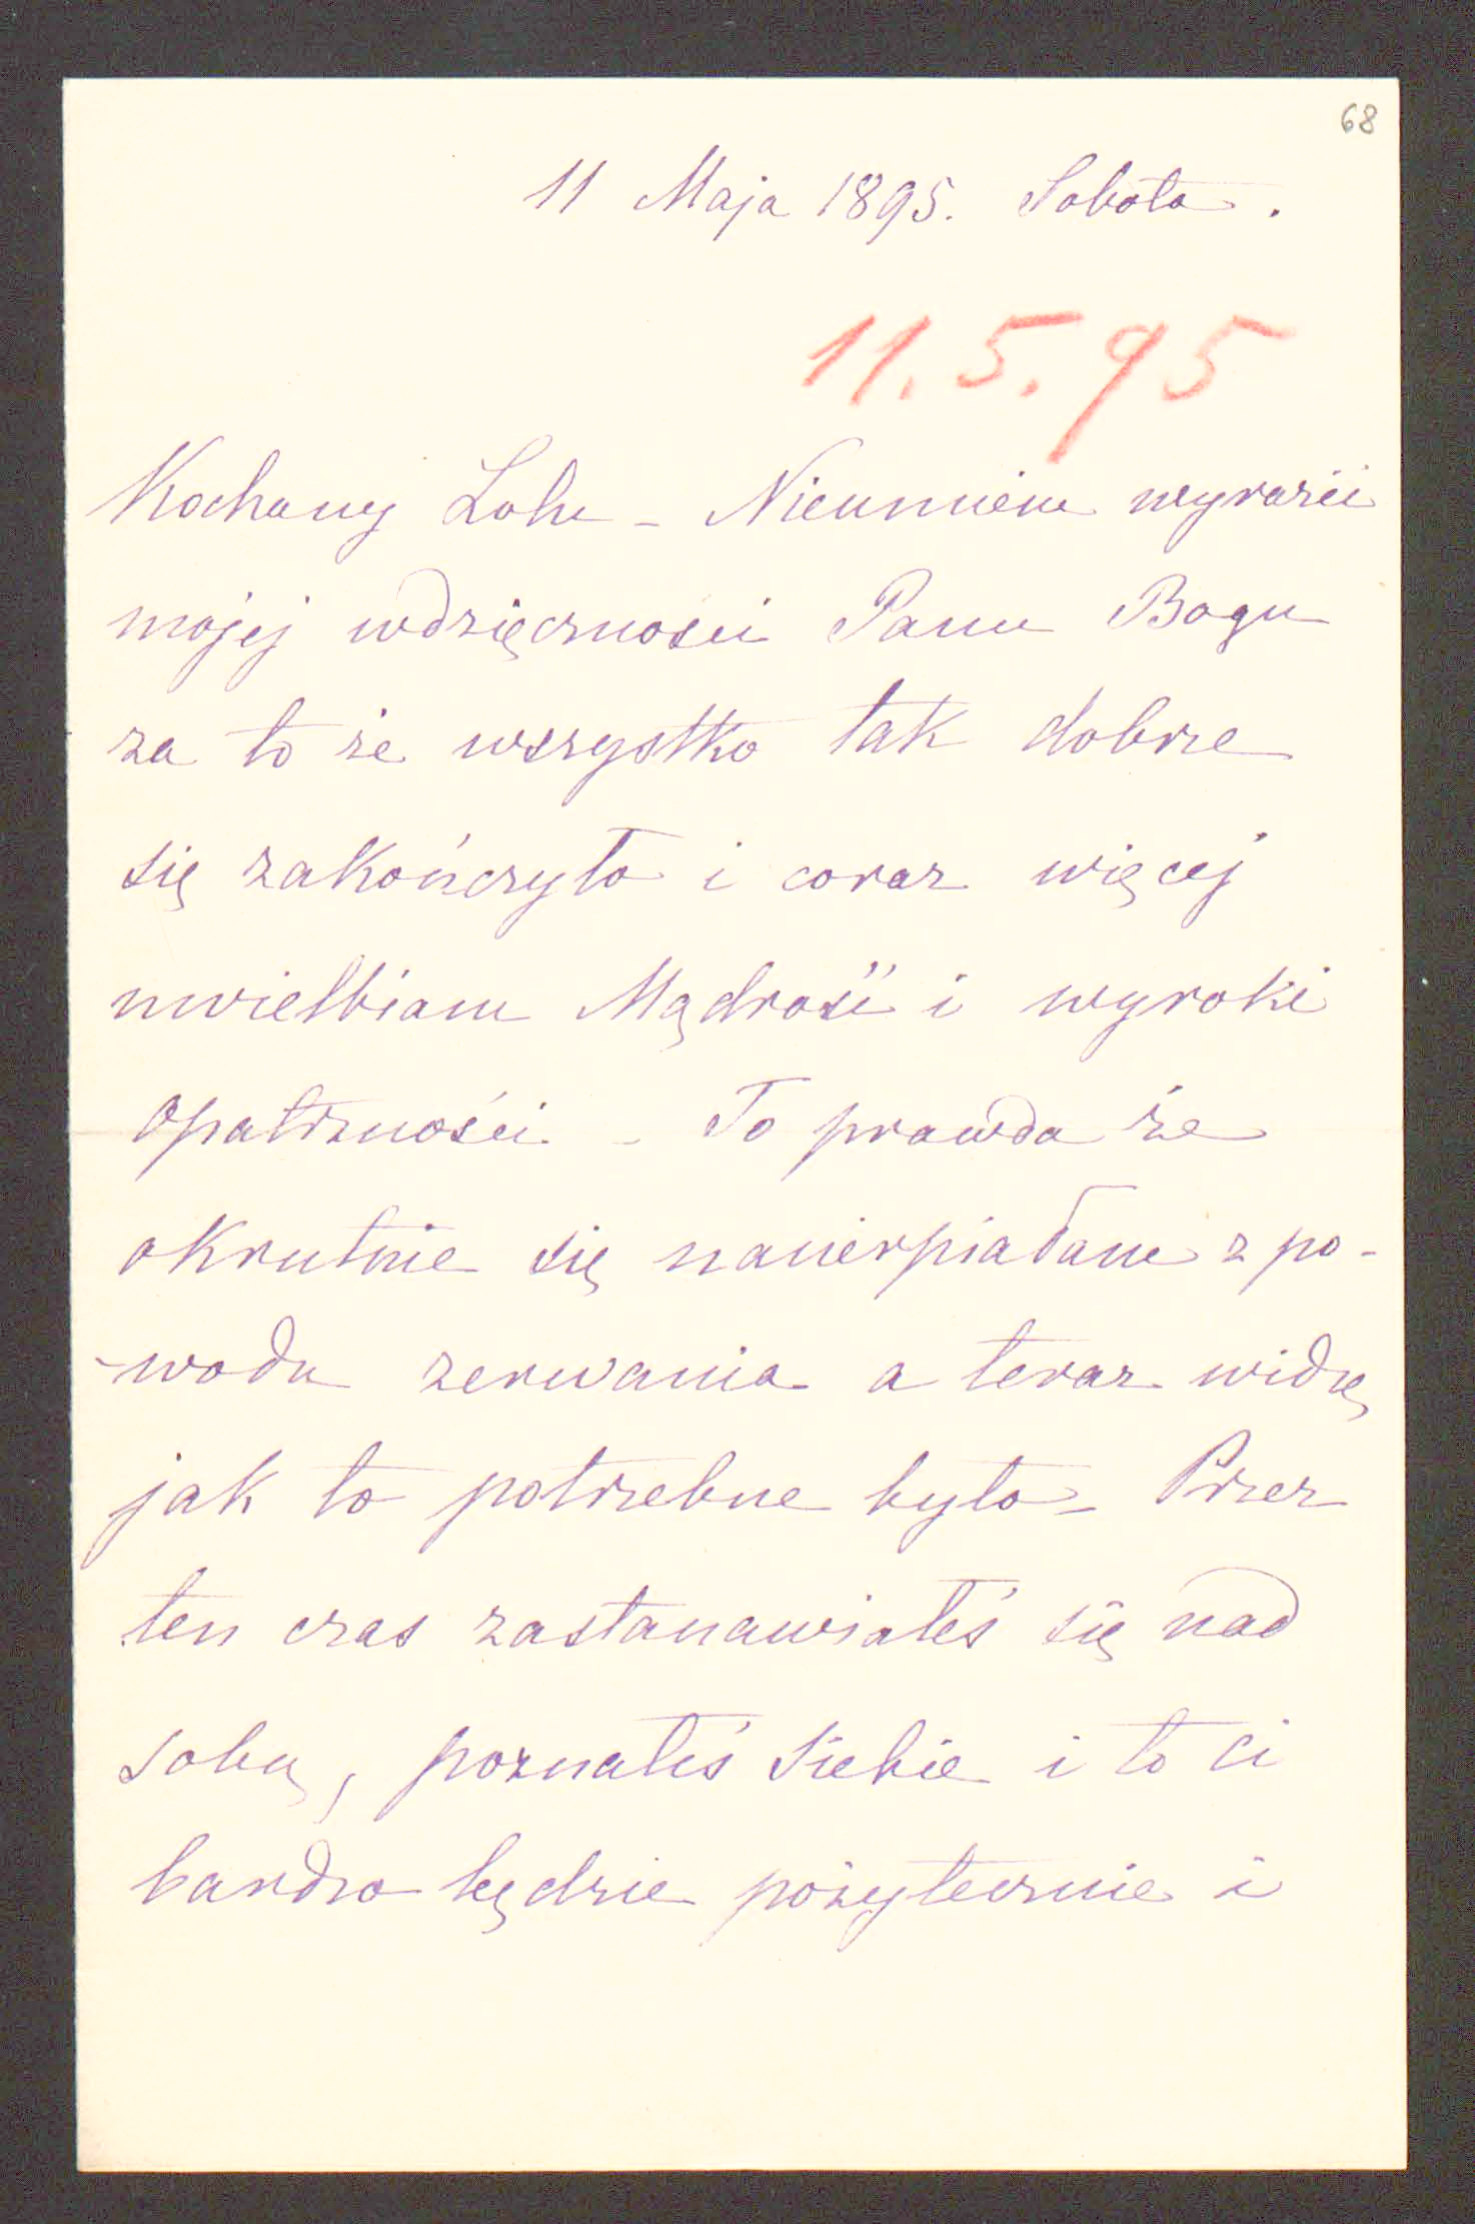 68
11 Maja 1895. Sobota.
11.5.95
Kochany Lolu – Nieumiem wyrazić
mojej wdzięczności Panu Bogu
za to że wszystko tak dobrze
się zakończyło i coraz więcej
uwielbiam Mądrość i wyroki
Opatrzności – To prawda że
okrutnie się nacierpiałam z po-
-wodu zerwania a teraz widzę
jak to potrzebne było – Przez
ten czas zastanawiałeś się nad
sobą, poznałeś siebie i to ci
bardzo będzie pożytecznie i